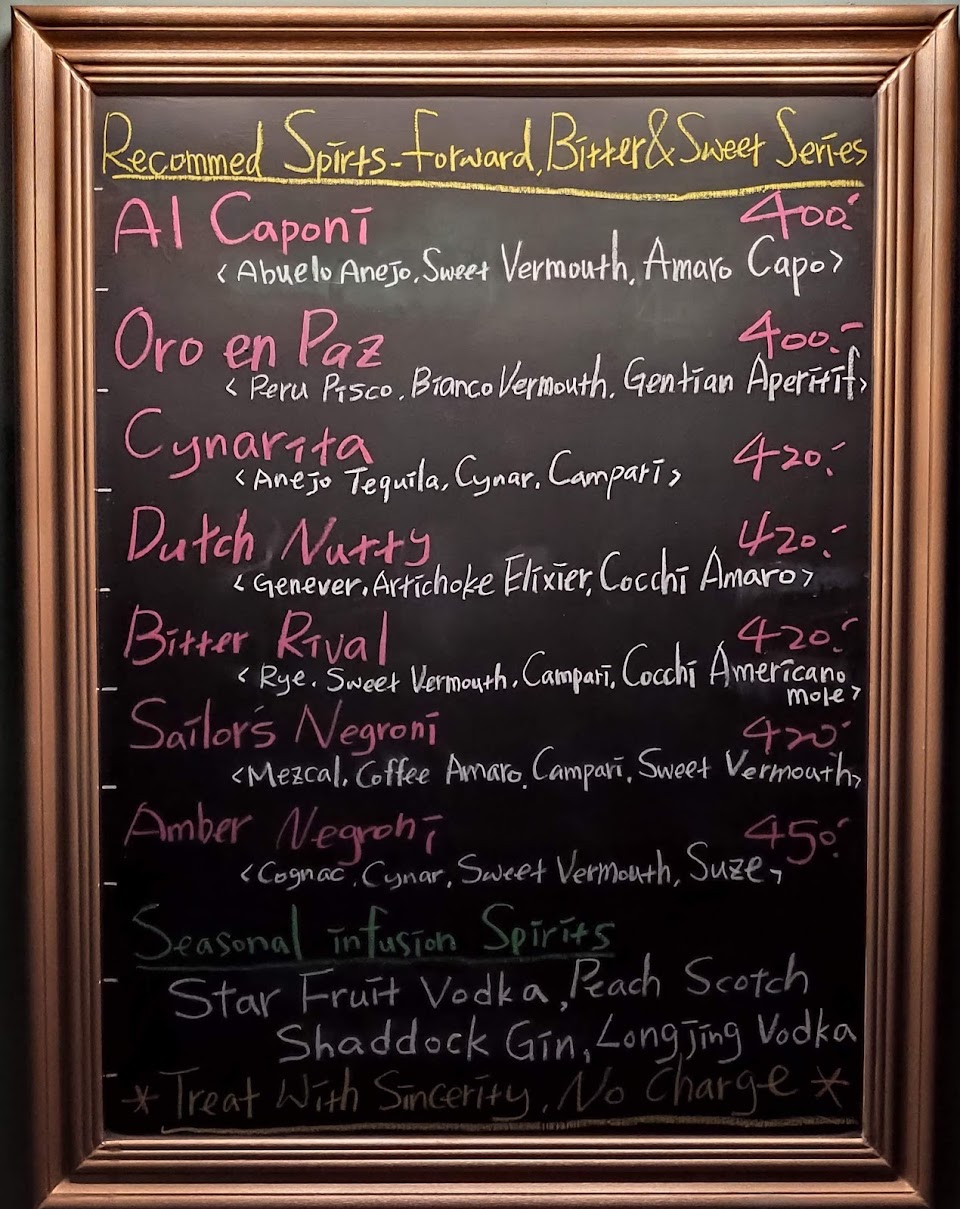 Recommed Spirts-Forward, Bitter & Sweet Series
Al Caponi 400.-
<Abuelo Anejo, Sweet Vermouth, Amaro Capo>
Oro en Paz 400.-
<Peru Pisco, Bianco Vermouth, Gentian Aperitif>
Cynarita 420.-
<Anejo Tequila, Cynar, Campari>
Dutch Nutty 420.-
<Genever, Artichoke Elixier, Cocchi Amaro>
Bitter Rival 420.-
<Rye, Sweet Vermouth, Campari, Cocchi Americano
more>
Sailor's Negroni 420.-
<Mezcal, Coffee Amaro, Campari, Sweet Vermouth>
Amber Negroni 450.-
<Cognac, Cynar, Sweet Vermouth, Suze>
Seasonal infusion Spirits
Star Fruit Vodka, Peach Scotch
Shaddock Gin, Longjing Vodka
* Treat With Sincerity, No Charge *